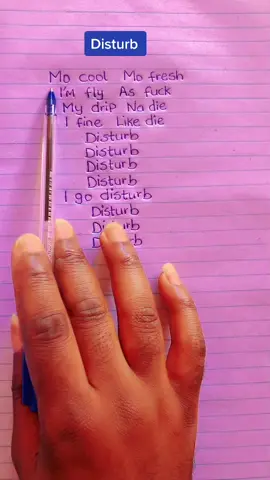 Disturb
Mo cool Mo fresh
I'm fly As fuck
My drip Na die
I fine Like die
Disturb
Disturb
Disturb
Disturb
I go disturb
Disturb
Disturb
Disturb